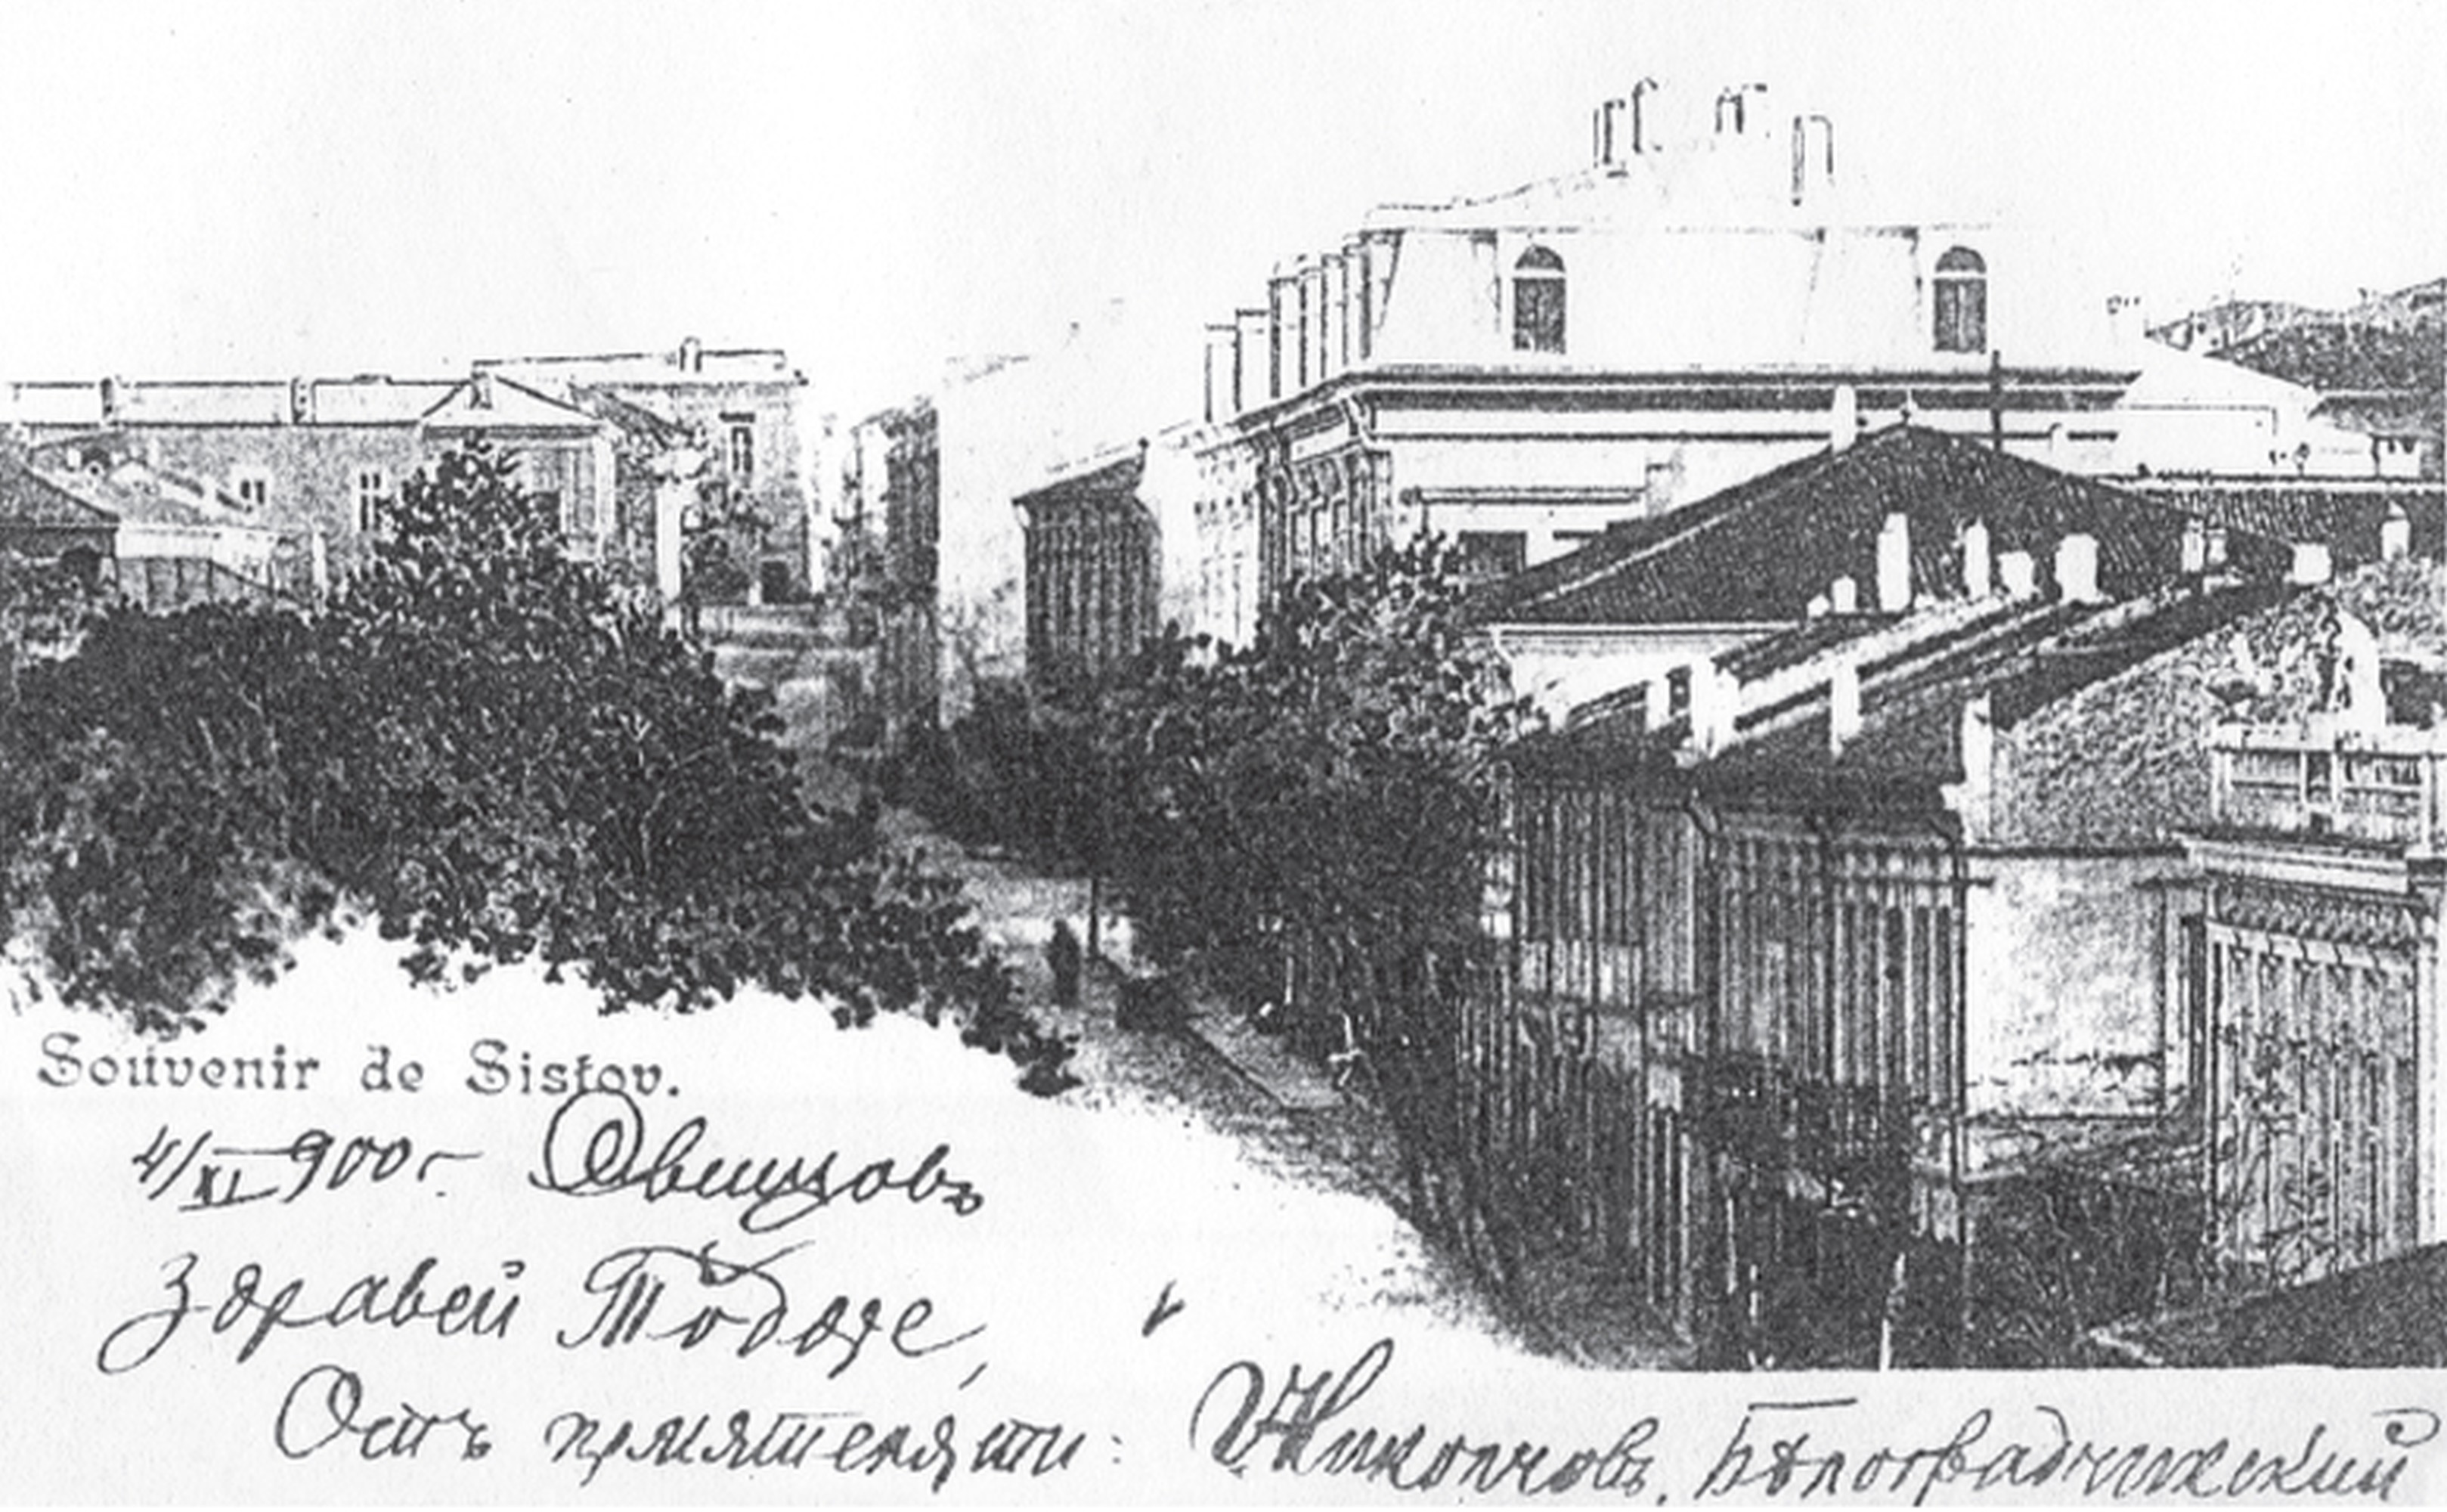 Souvenir de Sistov.
4/XI 900 г. Овчаровъ
Здравей Тодоре,
Отъ приятеляти: Никопчовъ, Бѣлоградчижский